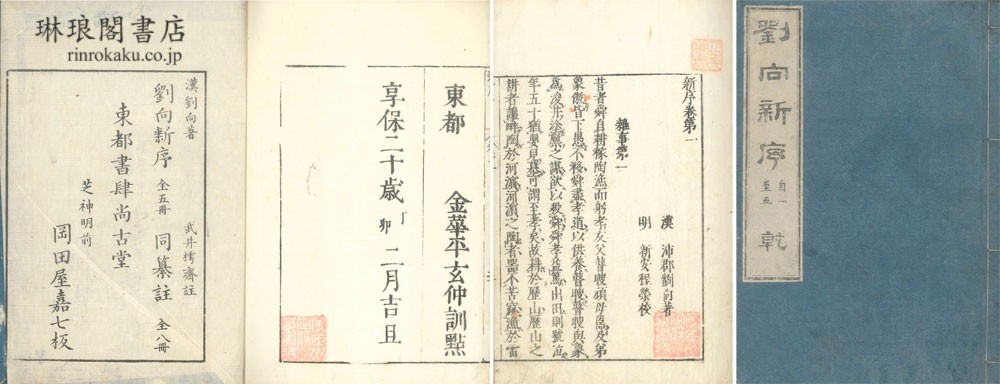 琳琅閣書店
rinrokaku.co.jp
漢劉向著 武井樗齋註
劉向新序 全五冊 同纂註 全八冊
東都書肆尚古堂
芝神明前
岡田屋嘉七板
東都 金華平玄仲訓點
享保二十歳 卯 二月吉旦
新序卷第一
漢 沛郡劉向著
明 新安程榮校
雜事第一
昔者舜自耕稼陶漁而躬孝友父瞽瞍頑母嚚及弟
象傲皆下愚不移舜盡孝道以供養瞽瞍瞽瞍與象
為浚井塗廩之謀欲以殺舜舜孝益篤出田則號泣
年五十猶嬰兒慕可謂至孝矣故耕於歷山歷山之
耕者讓畔陶於河濱河濱之陶者器不苦窳漁於雷
劉向新序 自一至五 乾